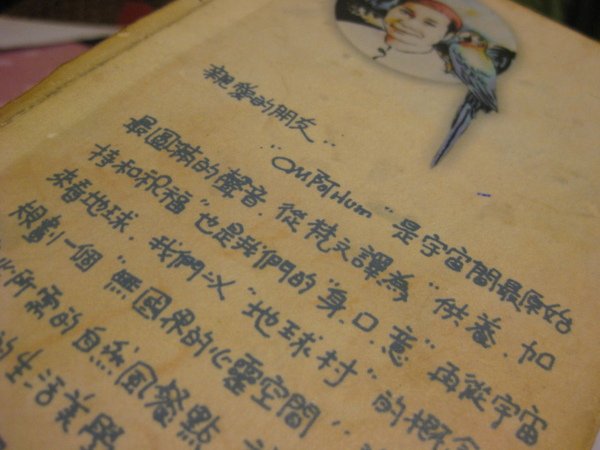 親愛的朋友..
"OM AH HUM" 是宇宙間最原始
最圓滿的聲音.從梵文譯為"供養.加
持和祝福"也是我們的"身.口.意"再從宇宙
來看地球.我們以"地球村"的概念
規劃一個"無國界的心靈空間"..
所需的自然風餐點
的生活美學